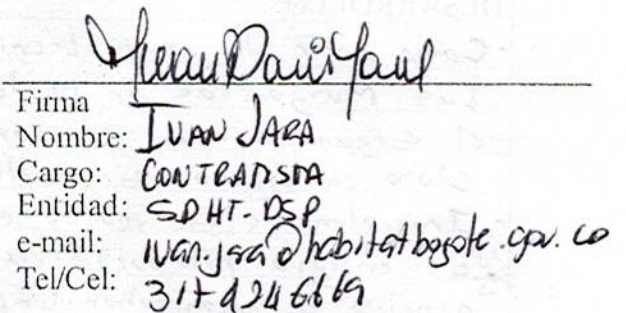 Firma
Nombre: IVAN JARA
Cargo: CONTRATISTA
Entidad: SDHT-DSP
e-mail: ivan.jara@habitatbogota.gov.co
Tel/Cel: